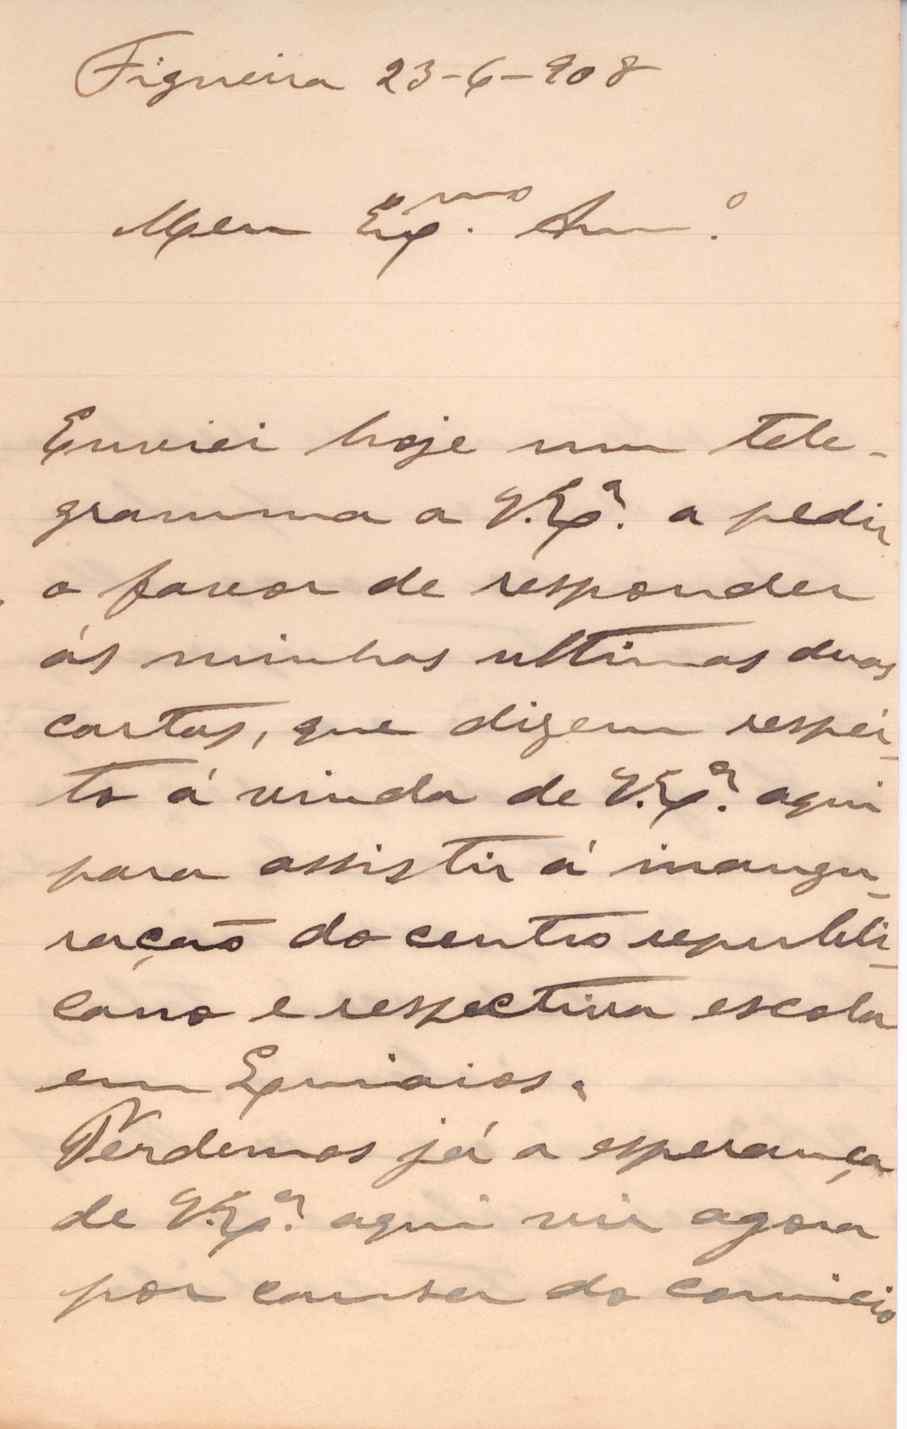 Figueira 23-6-908
Meu Exmo. Amo.
Enviei hoje um tele-
gramma a V. Exa. a pedir
o favor de responder
ás minhas ultimas duas
cartas, que dizem respei-
to á vinda de V. Exa. aqui
para assistir á inaugu-
ração do centro republi-
cano e respectiva escola
em Quiaios.
Perdemos já a esperança
de V. Exa. aqui vir agora
por causa do comicio